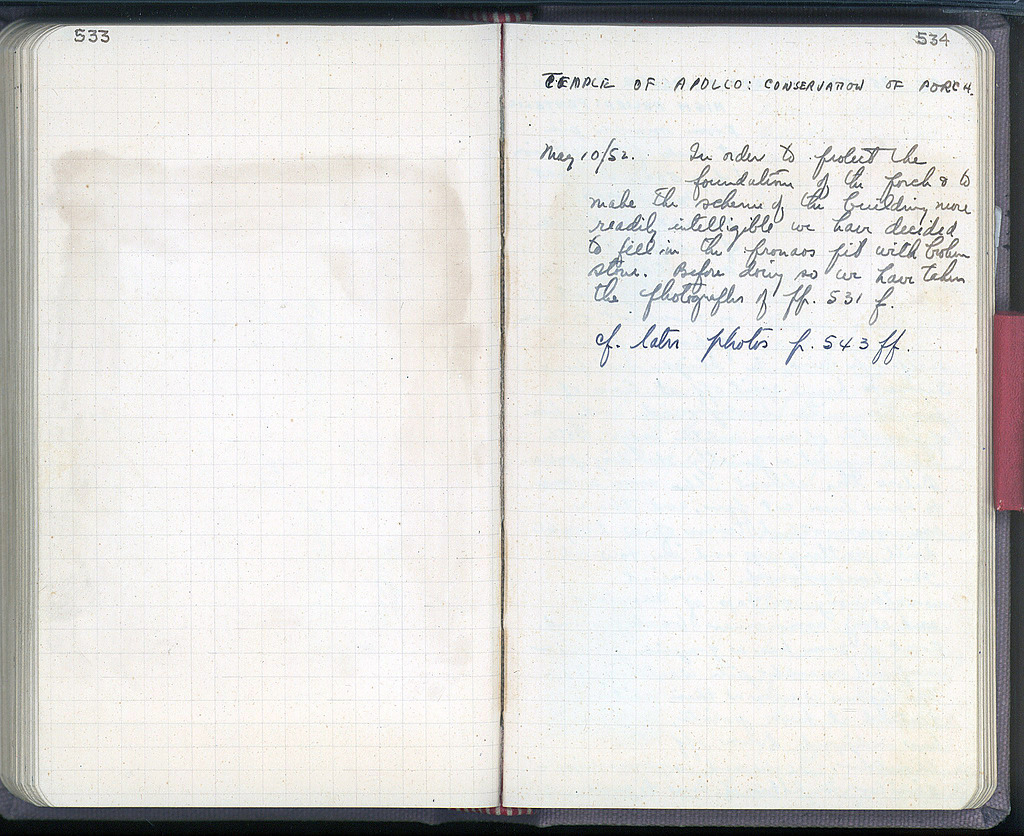 533
534
TEMPLE OF APOLLO: CONSERVATION OF PORCH.
May 10/52. In order to protect the
foundation of the porch & to
make the scheme of the building more
readily intelligible we have decided
to fill in the pronaos pit with broken
stone. Before doing so we have taken
the photographs of pp. 531 f.
cf. later photos p. 543 ff.